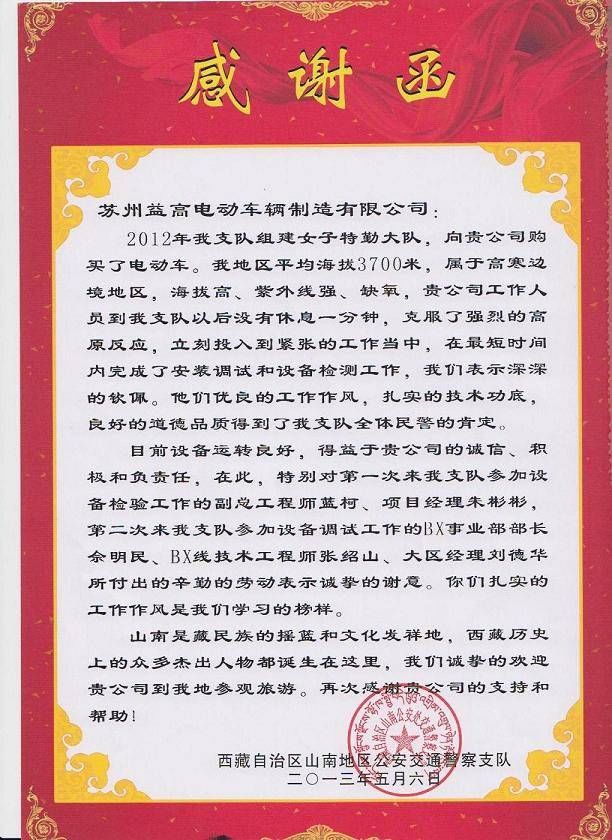 感谢函
苏州益高电动车辆制造有限公司：
2012年我支队组建女子特勤大队，向贵公司购
买了电动车。我地区平均海拔3700米，属于高寒边
境地区，海拔高、紫外线强、缺氧，贵公司工作人
员到我支队以后没有休息一分钟，克服了强烈的高
原反应，立刻投入到紧张的工作当中，在最短时间
内完成了安装调试和设备检测工作，我们表示深深
的钦佩。他们优良的工作作风，扎实的技术功底，
良好的道德品质得到了我支队全体民警的肯定。
目前设备运转良好，得益于贵公司的诚信、积
极和负责任，在此，特别对第一次来我支队参加设
备检验工作的副总工程师蓝柯、项目经理朱彬彬，
第二次来我支队参加设备调试工作的BX事业部部长
佘明民、BX线技术工程师张绍山、大区经理刘德华
所付出的辛勤的劳动表示诚挚的谢意。你们扎实的
工作作风是我们学习的榜样。
山南是藏民族的摇蓝和文化发祥地，西藏历史
上的众多杰出人物都诞生在这里，我们诚挚的欢迎
贵公司到我地参观旅游。再次感谢贵公司的支持和
帮助！
西藏自治区山南地区公安交通警察支队
二〇一三年五月六日